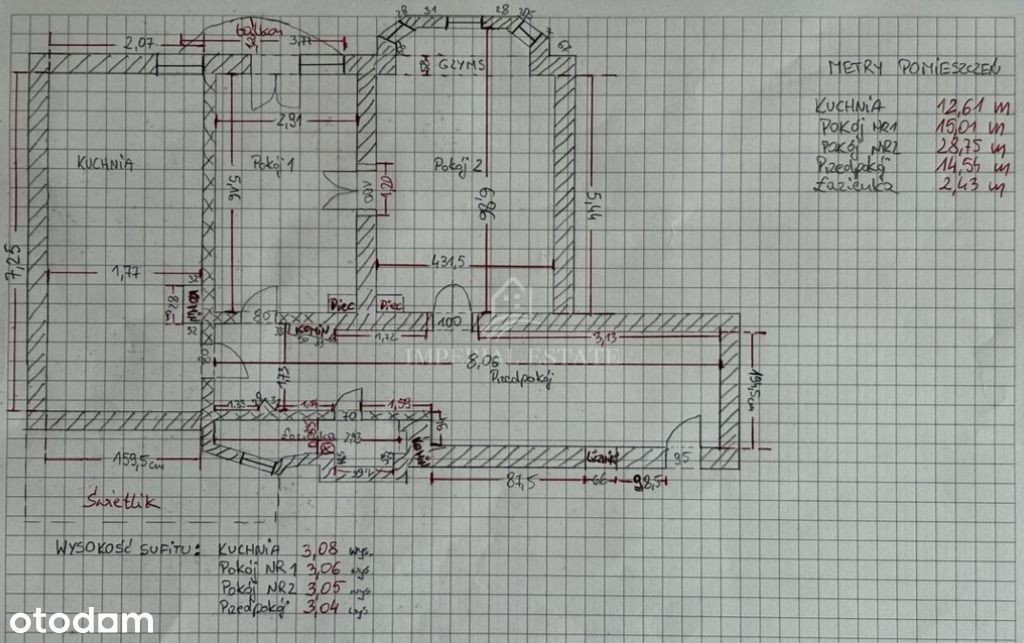 28 31 28 205
balkon
2,07
3,77
67
GZYMS
METRY POMIESZCZEŃ
KUCHNIA 12,61 m
Pokój NR1 15,01 m
Pokój NR2 28,75 m
Przedpokój 14,54 m
Łazienka 2,43 m
2,91
KUCHNIA
Pokój 1
Pokój 2
5,16
1,20
6,86
5,44
7,25
1,77
431,5
Piec
Piec
80
100
KOMIN
1,72
3,13
IMPERIAL ESTATE
8,06
Przedpokój
80
1,73
194,5 cm
1.33
70
1,59
Łazienka
2,93
KOMIN
159,5 cm
87,5
66
98,5
95
Świetlik
WYSOKOŚĆ SUFITU: KUCHNIA 3,08 wys.
Pokój NR 1 3,06 wys
Pokój NR2 3,05 wys
Przedpokój 3,04 wys
otodom